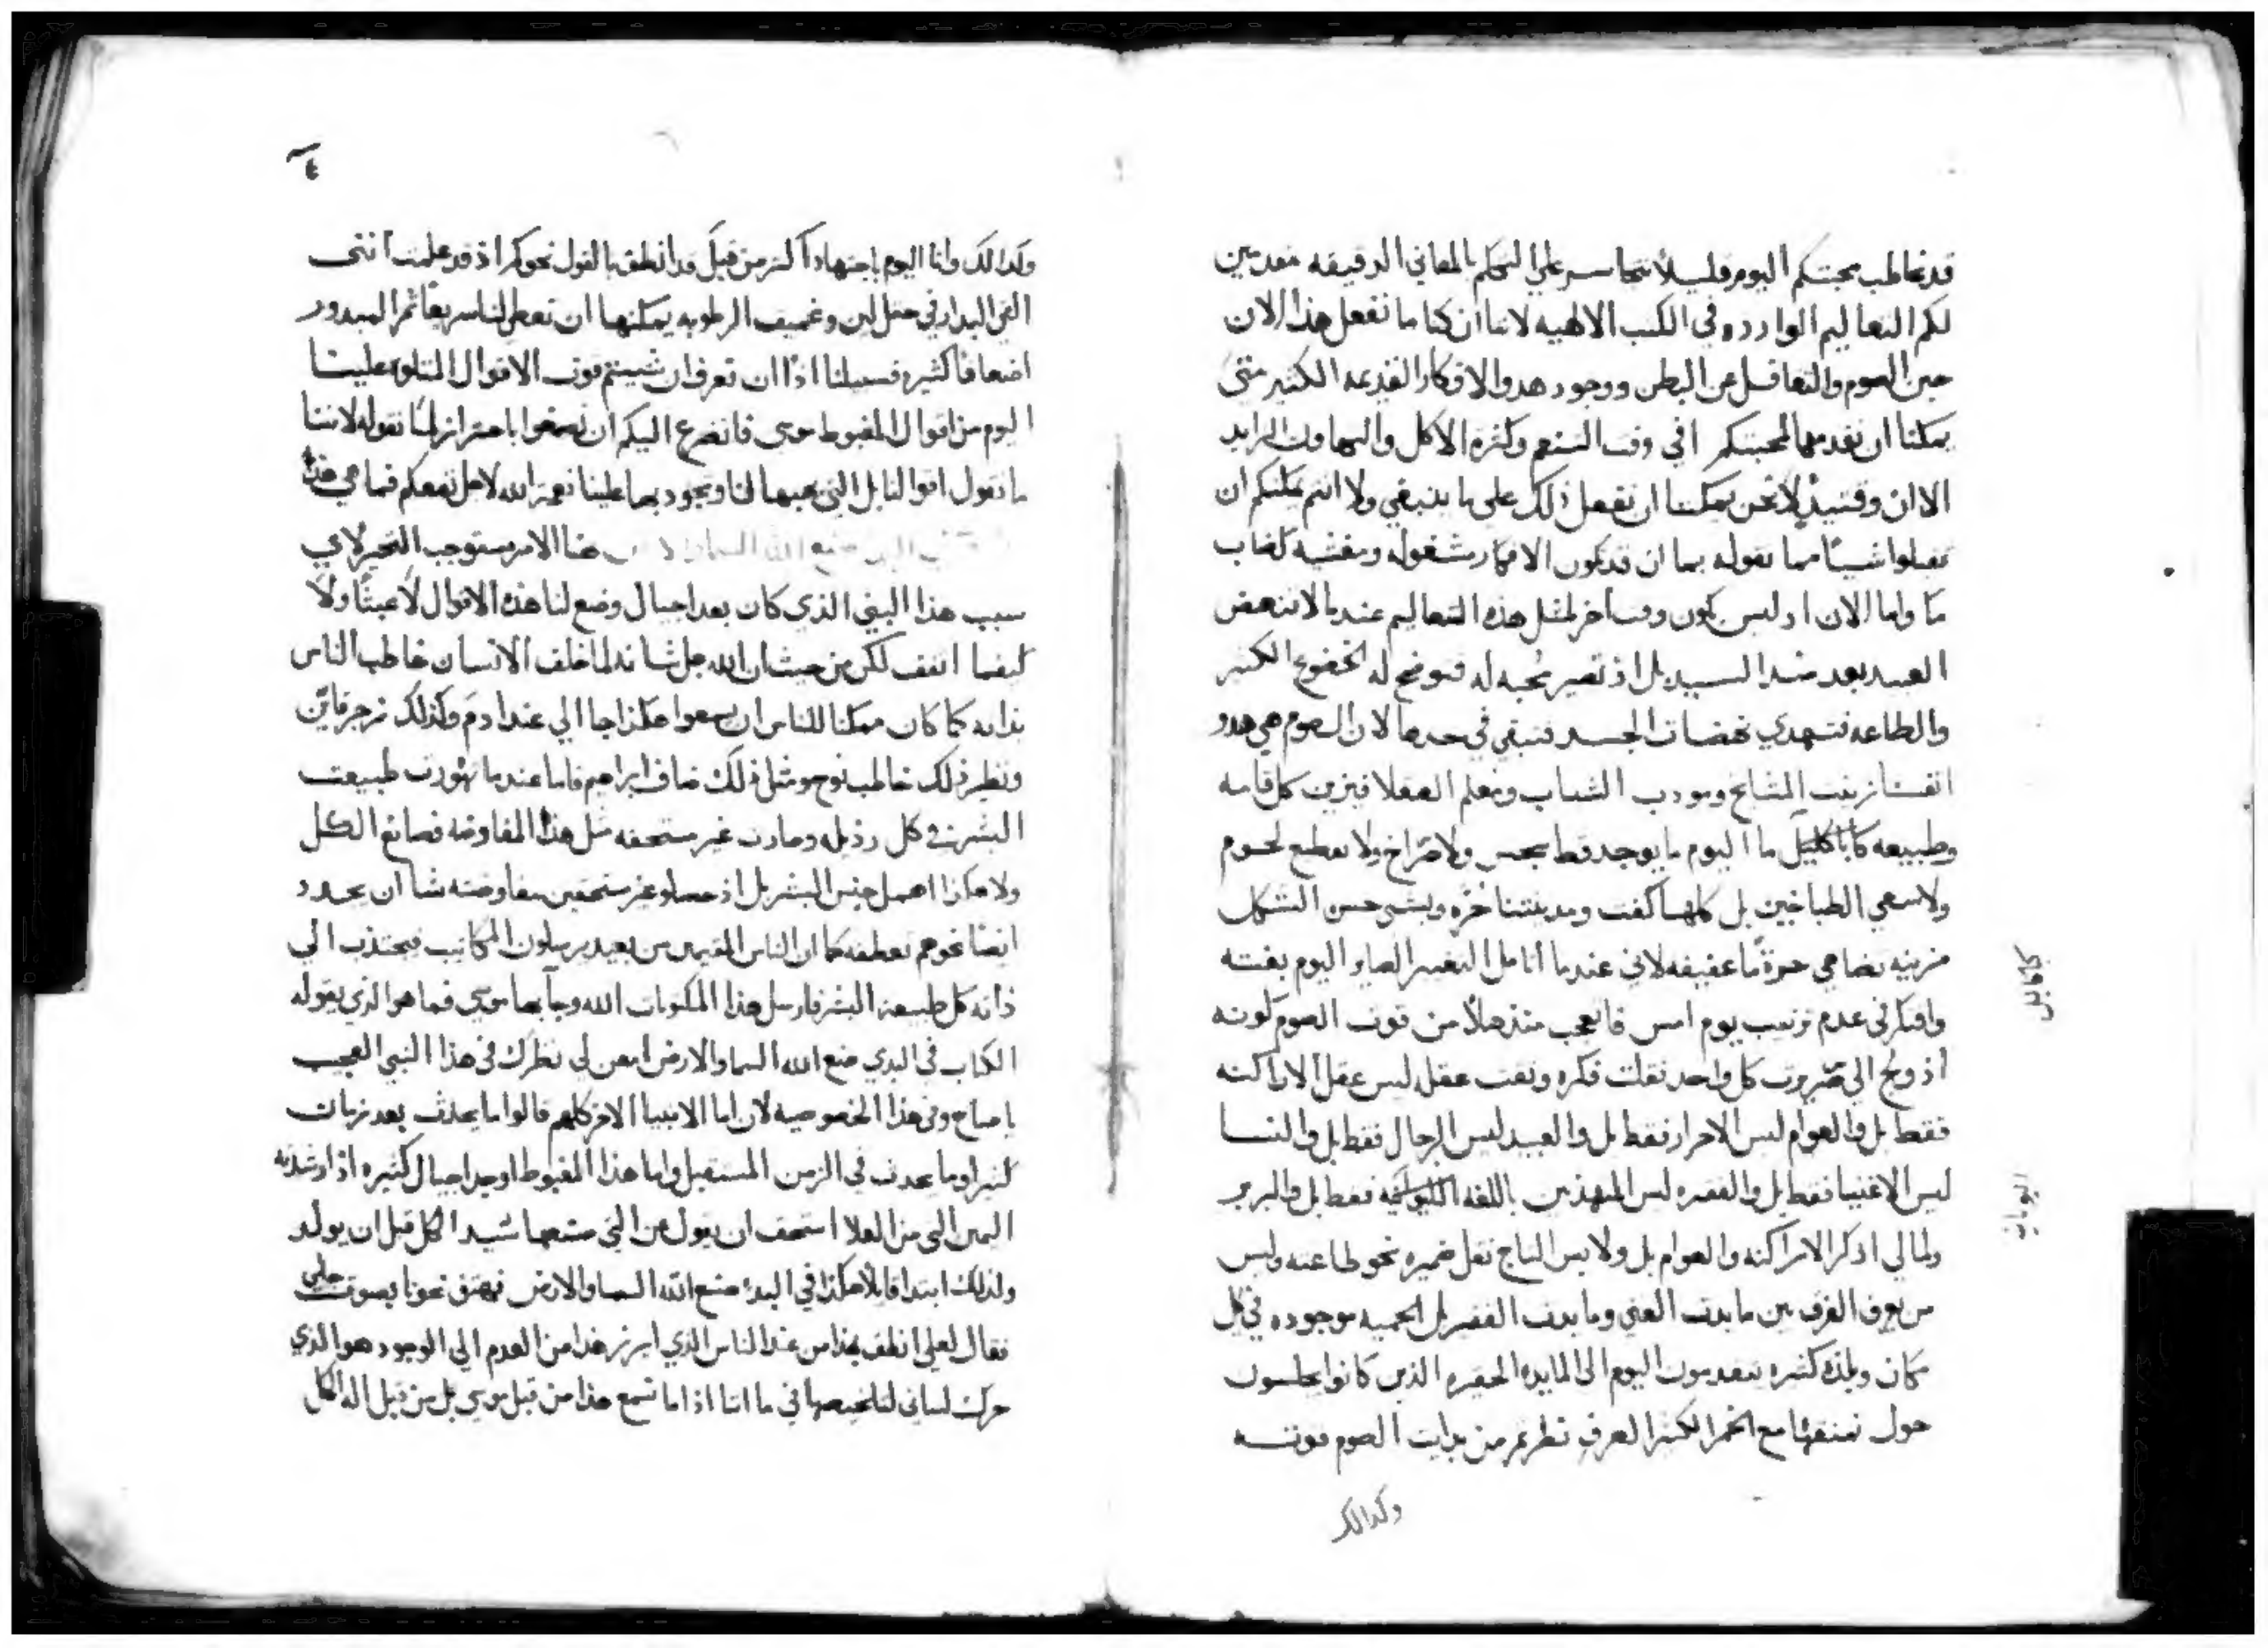 قد نخاطب محبتكم اليوم قليلاً نتجاسر علي التكلم بالمعاني الدقيقه مقدمين
لكم التعاليم الوارده في الكتب الالهيه لاننا ان كنا ما نفعل هذا الان
حين الصوم والتغافل عن البطن ووجود هدو الافكار القديمه الكثير متىَ
يمكننا ان نقدمها لمحبتكم افي وقت التنعم وكثرة الاكل والتهاون الزايد
الا ان وقتيذٍ لا نحن يمكننا ان نفعل ذلك على ما ينبغي ولا انتم يمكنكم ان
تقبلوا شيئًا مما نقوله بما ان قد تكون الافكار مشغوله ومغشيه كضباب
ما واما الان اذ ليس يكون وقت اخر لمثل هذه التعاليم عندما لا تنهض
العبده بعد ضد السيده بل اذ تصير محبه له فتوضح له الخضوع الكثير
والطاعه فتهدي نهضات الجسد فتبقي في حدها لان الصوم هي هدو
انفسنا زينت المشايخ ومودب الشباب ومعلم العقلا فيزين كل قامه
وطبيعه كاباكليل ما اليوم ما يوجد قط سجس ولا صراخ ولا تقطيع لحوم
ولا سعي الطباخين بل كلها كفت ومدينتنا حرّه وبشي حسن الشكل
مزينه تضاهي حرةً ما عفيفه لاني عندما اتامل التغير الصاير اليوم بغته
وافتكر في عدم ترتيب يوم امس فاتعجب منذهلاً من قوت الصوم كونه
اذ ولج الى ضميرت كل واحد نقلت فكره ونقت عقله ليس عقل الاراكنه
فقط بل والعوام ليس الاحرار فقط بل والعبيد ليس الرجال فقط بل والنسا
ليس الاغنيا فقط بل والفقره ليس المهذبين باللغه فقط بل والبربر
ولما لي اذكر الاراكنه والعوام بل ولابس التاج نقل ضميره نحو طاعته وليس
من يعرف الفرق بين مايدت الغني ومايدت الفقير بل الحميه موجوده في كل
مكان وبلذه كثيره يتقدمون اليوم الى المايده الحقيره الذين كانوا يجلسون
حول مع الخمر الكثير العرف نظرتم من بدايت الصوم قوته
وكذالك
كاقابل
٤
وكذالك وانا اليوم باجتهاد اكثر من قبل قد انطلق بالقول نحوكم اذ قد علمت انني
القي البدار في حقل لين وعميق الرطوبه يمكنها ان تعطي لنا سريعًا ثمر البدور
اضعافًا كثيره فسبيلنا اذًا ان نعرف ان شيتم قوت الاقوال المتلوه علينا
اليوم من اقوال المغبوط موسى فاتضرع اليكم ان تصغوا باحتراز لما نقوله لاننا
ما نقول اقوالنا بل التي تهبها لنا وتجود بها علينا نعمة الله لاجل نفعكم فما هي هذه
صنع الله السما هنا الامر يستوجب التحير لاي
سبب هذا النبي الذي كان بعد اجيال وضع لنا هذه الاقوال لا عبثًا ولا
كيفما اتفق لكن من حيث ان الله جل شانه لما خلق الانسان خاطب الناس
بذاته كما كان ممكنا للناس ان يسمعوا هكذا جا الي عند ادم وكذلك زجر قاين
ونظير ذلك خاطب نوح ومثل ذلك ضاف ابراهيم فاما عندما تهورت طبيعت
البشر في كل رذيله وصارت غير مستحقه مثل هذا المفاوضه فصانع الكل
ولا هكذا اهمل جنس البشر بل اذ حصلو غير مستحقين مفاوضته شا ان يجدد
ايضا نحوهم تعطفه كما ان الناس المقيمين من بعيد يرسلون المكاتيب فيجتذب الي
ذاته كل طبيعة البشر فارسل هذا المكتوبات الله وجآ بها موسي فما هو الذي يقوله
الكتاب في البدي صنع الله السما والارض امعن لي نظرك في هذا النبي العجيب
يا صاح وفي هذا الخصوصيه لان اما الانبيا الاخر كلهم قالوا ما يحدث بعد زمان
كثير او ما يحدث في الزمن المستقبل واما هذا المغبوط اوجد اجيال كثيره اذ ارشدته
اليمين التي من العلا استحق ان يقول عن التي صنعها سيد الكل قبل ان يولد
ولذلك ابتدا قايلاً هكذا في البدء صنع الله السما والارض فهتف نحونا بصوت جلي
فقال لعلي انطق بهذا من عند الناس الذي ابرز هذا من العدم الي الوجود هو الذي
حرك لساني لتلخيصها في ما اننا اذا ما نسمع هذا من قبل موسي بل من قبل اله الكل